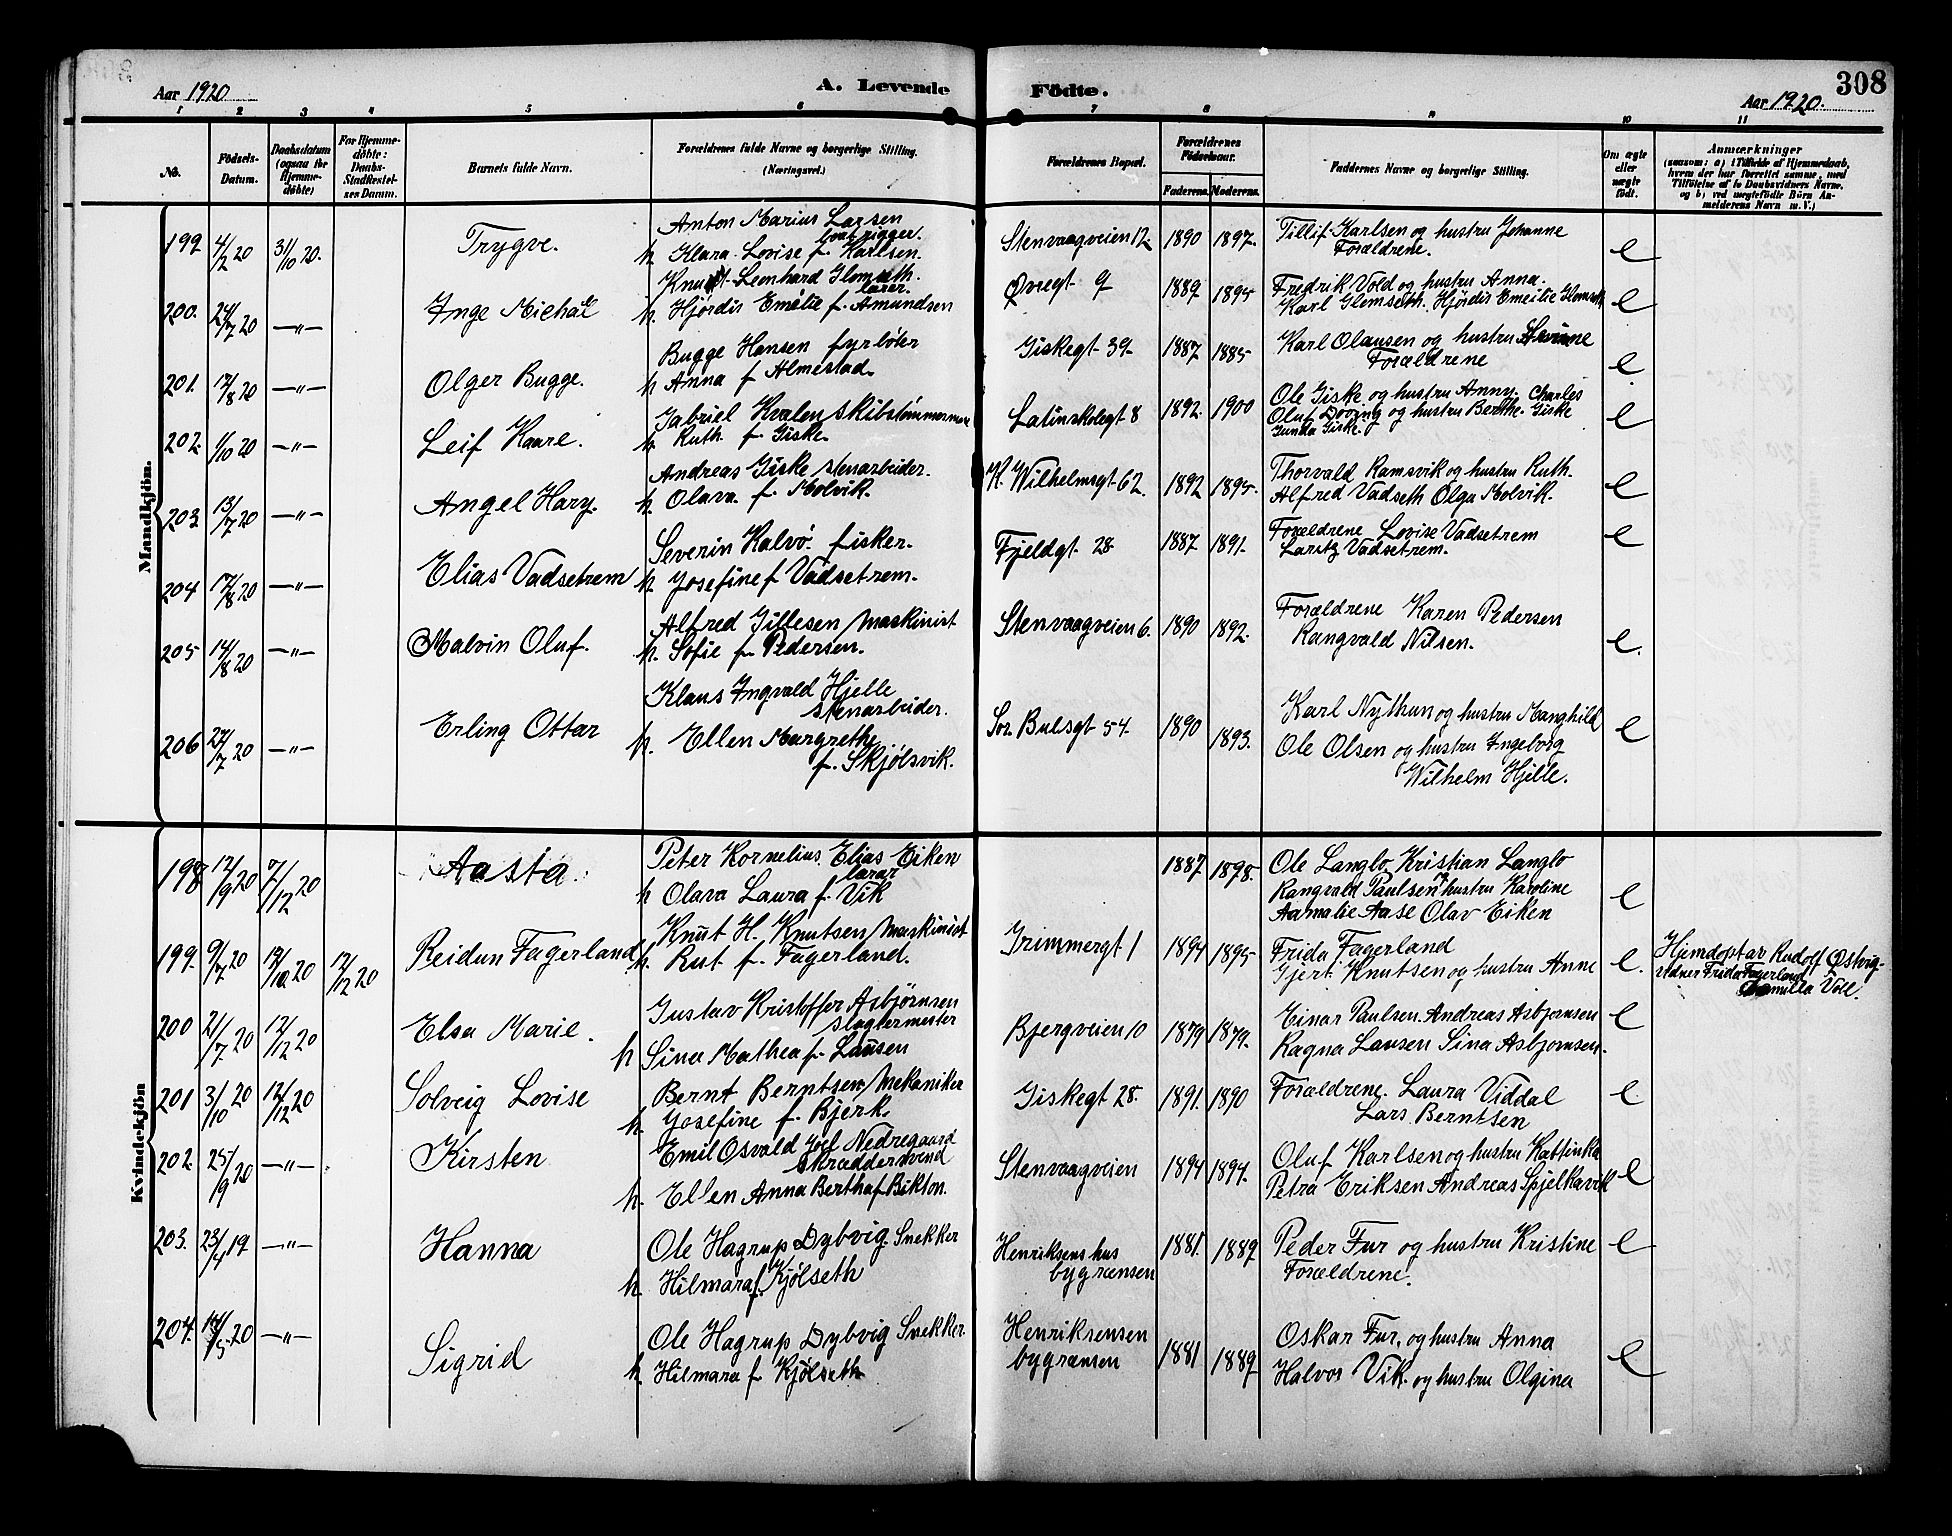 Aar 1920
A. Levende Födte.
Aar 1920.
308
1 2 3 4 5 6 7 8 9 10 11
No.
Födsels-Datum.
Daabsdatum (ogsaa for Hjemmedöbte)
For Hjemmedöbte: Daabs Stadfæstelses Datum.
Barnets fulde Navn.
Forældrenes fulde Navne og borgerlige Stilling. (Næringsvei.)
Forældrenes Bopæl.
Forældrenes Födselsaar.
Faderens. Moderens.
Faddernes Navne og borgerlige Stilling.
Om ægte eller uægte födt.
Anmærkninger
(saasom: a) i Tilfælde af Hjemmedaab, hvem der har forrettet samme, med Tilföielse af to Daabsvidners Navne, og b) ved uægtefödte Börn Anmelderens Navn m. V.)
Mandkjön.
199 4/2 20 31/10 20. Trygve. Anton Marius Larsen
h. Klara Lovise f. Karlsen. Stenvaagveien 12 1890 1897. Tillif Karlsen og hustru Johanne
Forældrene. e
200. 24/7 20 —"— Inge Michal Knut Leonhard Glomseth. lærer.
h. Hjördis Emélie f. Amundsen Øvregt 9 1889 1895 Fredrik Vold og hustru Anna.
Karl Glomseth. Hjördis Emeilie Glomseth e
201. 12/8 20 —"— Olger Bugge. Bugge Hansen fyrböter
h Anna f Almestad. Giskegt 39. 1887 1885 Karl Olausen og hustru
Forældrene e.
202. 1/10 20 —"— Leif Kaare. Gabriel Kvalen skibstömmermann
h. Ruth f. Giske. Latinskolegt 8 1892. 1900 Ole Giske og hustru Anny. Charles
Oluf Döving og hustru Berthe. Giske
Gunda Giske. e
203 13/7 20 —"— Angel Hary. Andreas Giske stenarbeider.
h. Olava f. Molvik. K. Wilhelmsgt 62. 1892 1895. Thorvald Ramsvik og hustru Ruth.
Alfred Vadseth Olga Molvik. e
204 17/8 20 —"— Elias Vadsetrem Severin Kalvö. fisker.
h. Josefine f Vadsetrem. Fjeldgt. 28. 1887 1891. Forældrene Lovise Vadsetrem
Vadsetrem. e
205 14/8 20 —"— Malvin Oluf. Alfred Gillesen Maskinist
h. Sofie f. Pedersen. Stenvaagveien 6. 1890 1892. Forældrene Karen Pedersen
Rangvald Nilsen. e.
206 24/7 20 —"— Erling Ottar Klaus Ingvald Hjelle
stenarbeider.
h. Ellen Margrethe
f. Skjölsvik. Sor. Bulsgt 54. 1890 1893. Karl Nythun og hustru Manghild
Ole Olsen og hustru Ingeborg
Wilhelm Hjelle. e
Kvindekjön
198 12/9 20 7/12 20 Aasta. Peter Kornelius Elias Eiken
lærer
h Olava Laura f. Vik 1887 1898. Ole Langlo Kristian Langlo
Rangvald Paulsen og hustru Karoline
Aamalie Aase Olav Eiken e
199. 9/7 20 13/10 20 12/12 20 Reidun Fagerland Knut H. Knutsen Maskinist
h. Rut f. Fagerland. Grimmergt 1 1894 1895 Frida Fagerland
Gjert Knutsen og hustru Anne e. Hjemdöptav Rudolf Østvig
Frida Fagerland
200 21/7 20 12/12 20 Elsa Marie. Gustav Kristoffer Asbjörnsen
slagtermester
h Sina Mathea f. Lausen Bjergveien 10 1879 1879. Einar Paulsen Andreas Asbjornsen
Ragna Lausen Sina Asbjornsen. e
201 3/10 20 12/12 20 Solveig Lovise Bernt Berntsen Mekaniker
h. Josefine f. Bjerk. Giskegt 28. 1891. 1890 Forældrene. Laura Viddal
Lars Berntsen e.
202. 25/9 20 —"— Kirsten Emil Osvald Joel Nedregaard
skræddersvend
h. Ellen Anna Bertha f Bikton. Stenvaagveien 1894 1894. Oluf Karlsen og hustru Kattinka
Petra Eriksen Andreas Spjelkavik e
203. 23/4 19 —"— Hanna Ole Hagrup Dybvig. Snekker
h. Hilmara f. Kjölseth Henriksens hus
bygrænsen 1881. 1889 Peder Fur og hustru Kristine
Forældrene. e
204. 14/5 20 —"— Sigrid Ole Hagrup Dybvig Snekker.
h. Hilmara f. Kjölseth Henriksensen
bygrænsen 1881 1889 Oskar Fur, og hustru Anna
Halvor Vik og hustru Olgina e